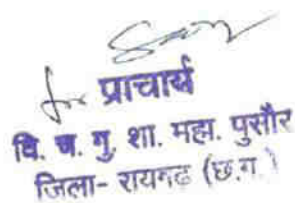 for प्राचार्य
वि. च. गु. शा. महा. पुसौर
जिला- रायगढ (छ.ग.)